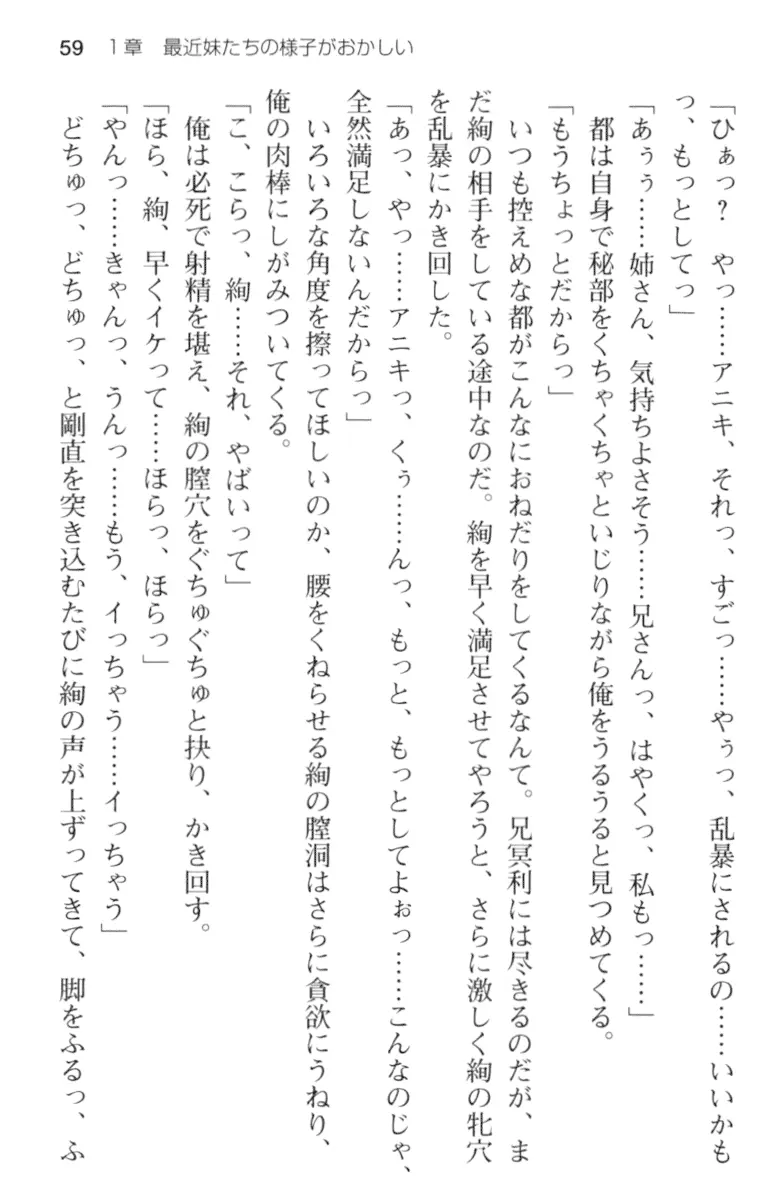 59 1章 最近妹たちの様子がおかしい
「ひぁっ? やっ……アニキ、それっ、すごっ……やぅっ、乱暴にされるの……いいかも
っ、もっとしてっ」
「あぅぅ……姉さん、気持ちよさそう……兄さんっ、はやくっ、私もっ……」
都は自身で秘部をくちゃくちゃといじりながら俺をうるうると見つめてくる。
「もうちょっとだからっ」
いつも控えめな都がこんなにおねだりをしてくるなんて。兄冥利には尽きるのだが、ま
だ絢の相手をしている途中なのだ。絢を早く満足させてやろうと、さらに激しく絢の牝穴
を乱暴にかき回した。
「あっ、やっ……アニキっ、くぅ……んっ、もっと、もっとしてよぉっ……こんなのじゃ、
全然満足しないんだからっ」
いろいろな角度を擦ってほしいのか、腰をくねらせる絢の膣洞はさらに貪欲にうねり、
俺の肉棒にしがみついてくる。
「こ、こらっ、絢……それ、やばいって」
俺は必死で射精を堪え、絢の膣穴をぐちゅぐちゅと抉り、かき回す。
「ほら、絢、早くイケって……ほらっ、ほらっ」
「やんっ……きゃんっ、うんっ……もう、イっちゃう……イっちゃう」
どちゅっ、どちゅっ、と剛直を突き込むたびに絢の声が上ずってきて、脚をふるっ、ふ